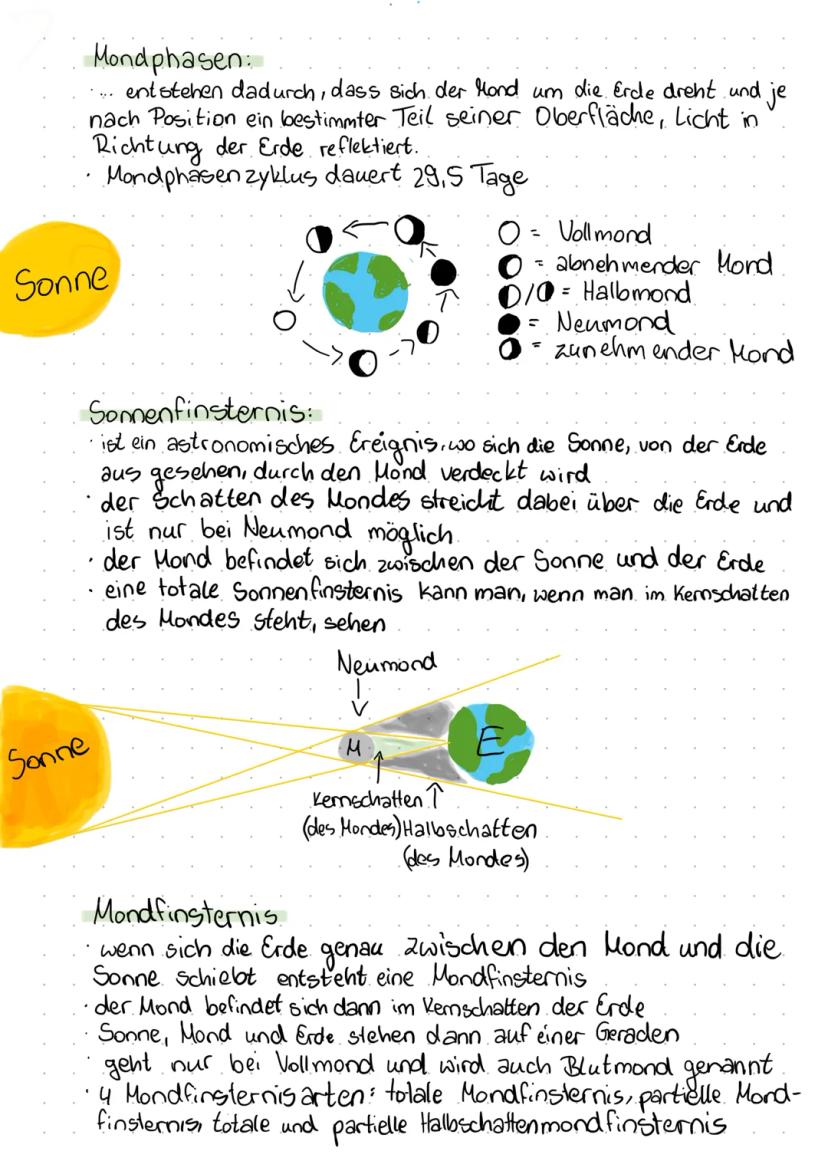 Mondphasen:
... entstehen dadurch, dass sich der Mond um die Erde dreht und je
nach Position ein bestimmter Teil seiner Oberfläche, Licht in
Richtung der Erde reflektiert.
· Mondphasenzyklus dauert 29,5 Tage
Sonne
= Vollmond
= abnehmender Mond
/ = Halbmond
= Neumond
= zunehmender Mond
Sonnenfinsternis:
· ist ein astronomisches Ereignis, wo sich die Sonne, von der Erde
aus gesehen, durch den Mond verdeckt wird
· der Schatten des Mondes streicht dabei über die Erde und
ist nur bei Neumond möglich
· der Mond befindet sich zwischen der Sonne und der Erde
· eine totale Sonnenfinsternis kann man, wenn man im Kernschatten
des Mondes steht, sehen
Neumond
Sonne
M
E
Kernschatten
(des Mondes)
Halbschatten
(des Mondes)
Mondfinsternis
· wenn sich die Erde genau zwischen den Mond und die
Sonne schiebt entsteht eine Mondfinsternis
· der Mond befindet sich dann im Kernschatten der Erde
· Sonne, Mond und Erde stehen dann auf einer Geraden
· geht nur bei Vollmond und wird auch Blutmond genannt
· 4 Mondfinsternisarten: totale Mondfinsternis, partielle Mond-
finsternis, totale und partielle Halbschattenmondfinsternis